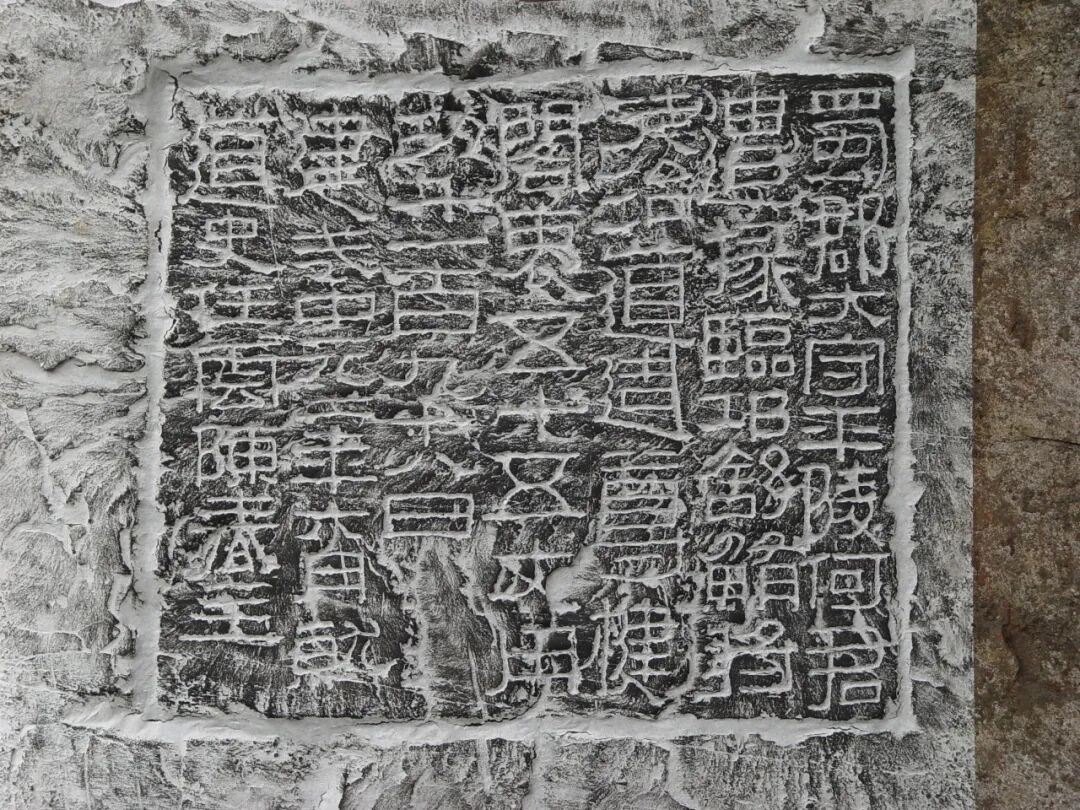 蜀郡大守平陵何君
遣掾臨邛舒鮪將
徒治道造尊楗
閣袤五十五丈用
功千一百九十八日
建武中元二年六月就
道史任雲陳春主